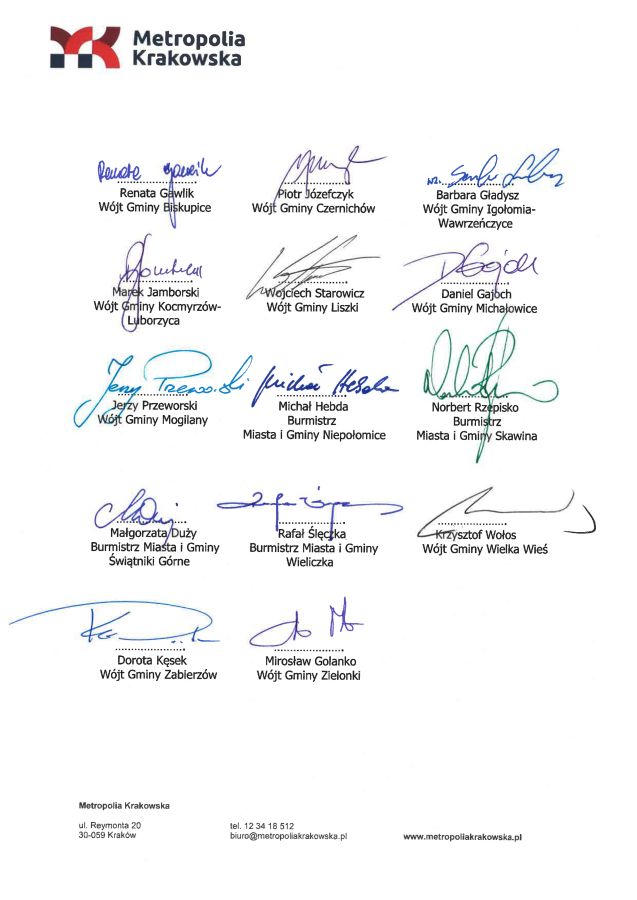 Metropolia
Krakowska
Renata Gawlik
Wójt Gminy Biskupice
Piotr Józefczyk
Wójt Gminy Czernichów
wz.
Barbara Gładysz
Wójt Gminy Igołomia-
Wawrzeńczyce
Marek Jamborski
Wójt Gminy Kocmyrzów-
Luborzyca
Wojciech Starowicz
Wójt Gminy Liszki
DGajoch
Daniel Gajoch
Wójt Gminy Michałowice
Jerzy Przeworski
Jerzy Przeworski
Wójt Gminy Mogilany
Michał Hebda
Michał Hebda
Burmistrz
Miasta i Gminy Niepołomice
Norbert Rzepisko
Burmistrz
Miasta i Gminy Skawina
Małgorzata Duży
Burmistrz Miasta i Gminy
Świątniki Górne
Rafał Ślęczka
Burmistrz Miasta i Gminy
Wieliczka
Krzysztof Wołos
Wójt Gminy Wielka Wieś
Dorota Kęsek
Wójt Gminy Zabierzów
Mirosław Golanko
Wójt Gminy Zielonki
Metropolia Krakowska
ul. Reymonta 20
30-059 Kraków
tel. 12 34 18 512
biuro@metropoliakrakowska.pl
www.metropoliakrakowska.pl